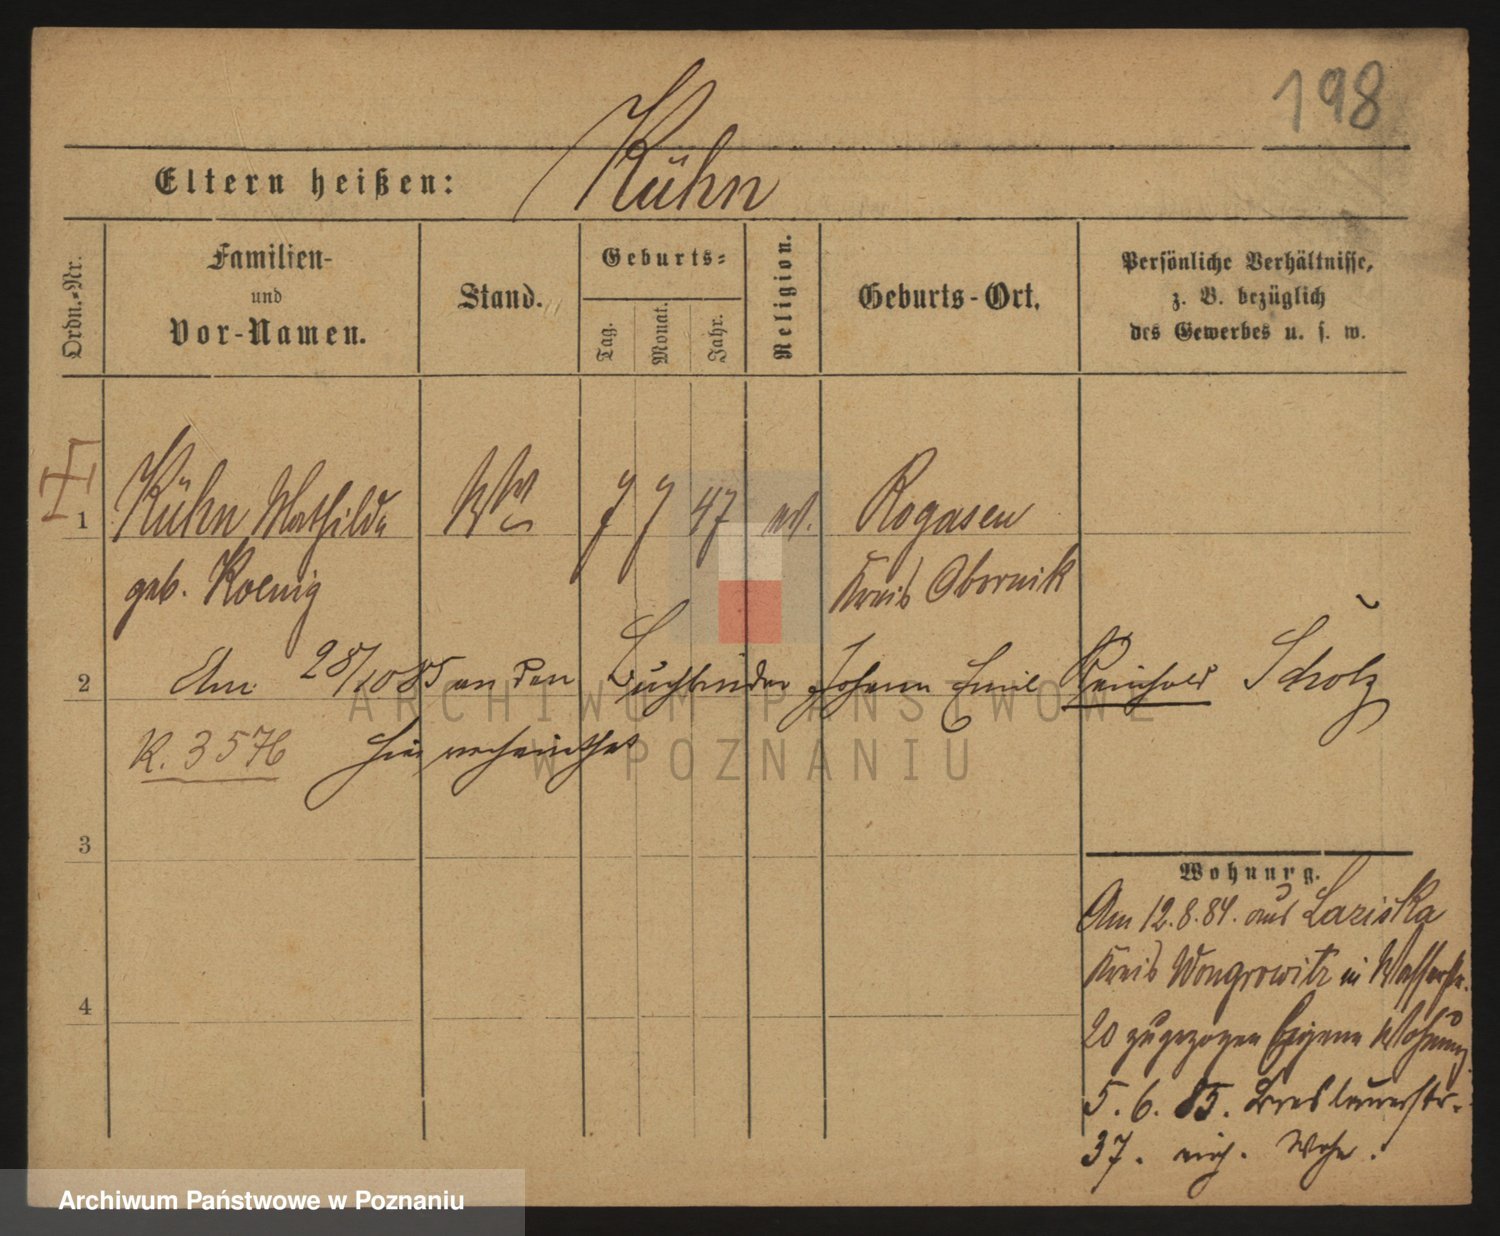 198
Eltern heißen: Kühn
Ordn.-Nr.
Familien-
und
Vor-Namen.
Stand.
Geburts-
Tag.
Monat.
Jahr.
Religion.
Geburts-Ort.
Persönliche Verhältnisse,
z. B. bezüglich
des Gewerbes u. s. w.
1 Kühn Mathilde 7 7 47 ev. Rogasen
geb. Koenig Kreis Obornik
2 Am 28/10 85 an den Buchbinder Johann Emil Reinhold Scholz
K. 3576 hier verheirathet
3
4
Wohnung.
Am 12.8.84. aus Laziska
Kreis Wongrowitz in Wasserstr.
20 zugezogen Eigene Wohnung
5. 6. 85. Breslauerstr.
37. eig. Wohn.
ARCHIWUM PAŃSTWOWE
W POZNANIU
Archiwum Państwowe w Poznaniu